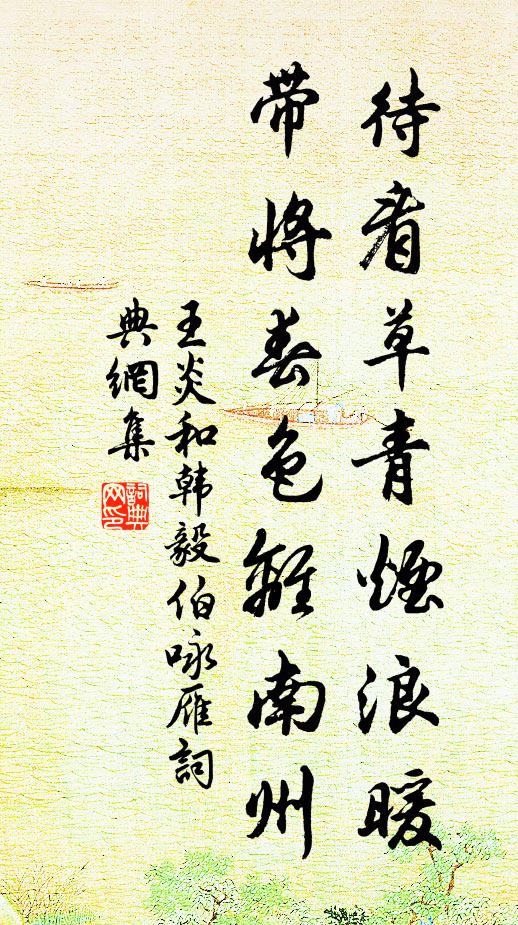 待看草青煙浪暖
帶將春色離南州
王炎和韩毅伯咏雁詞
典網集
詞典
网印